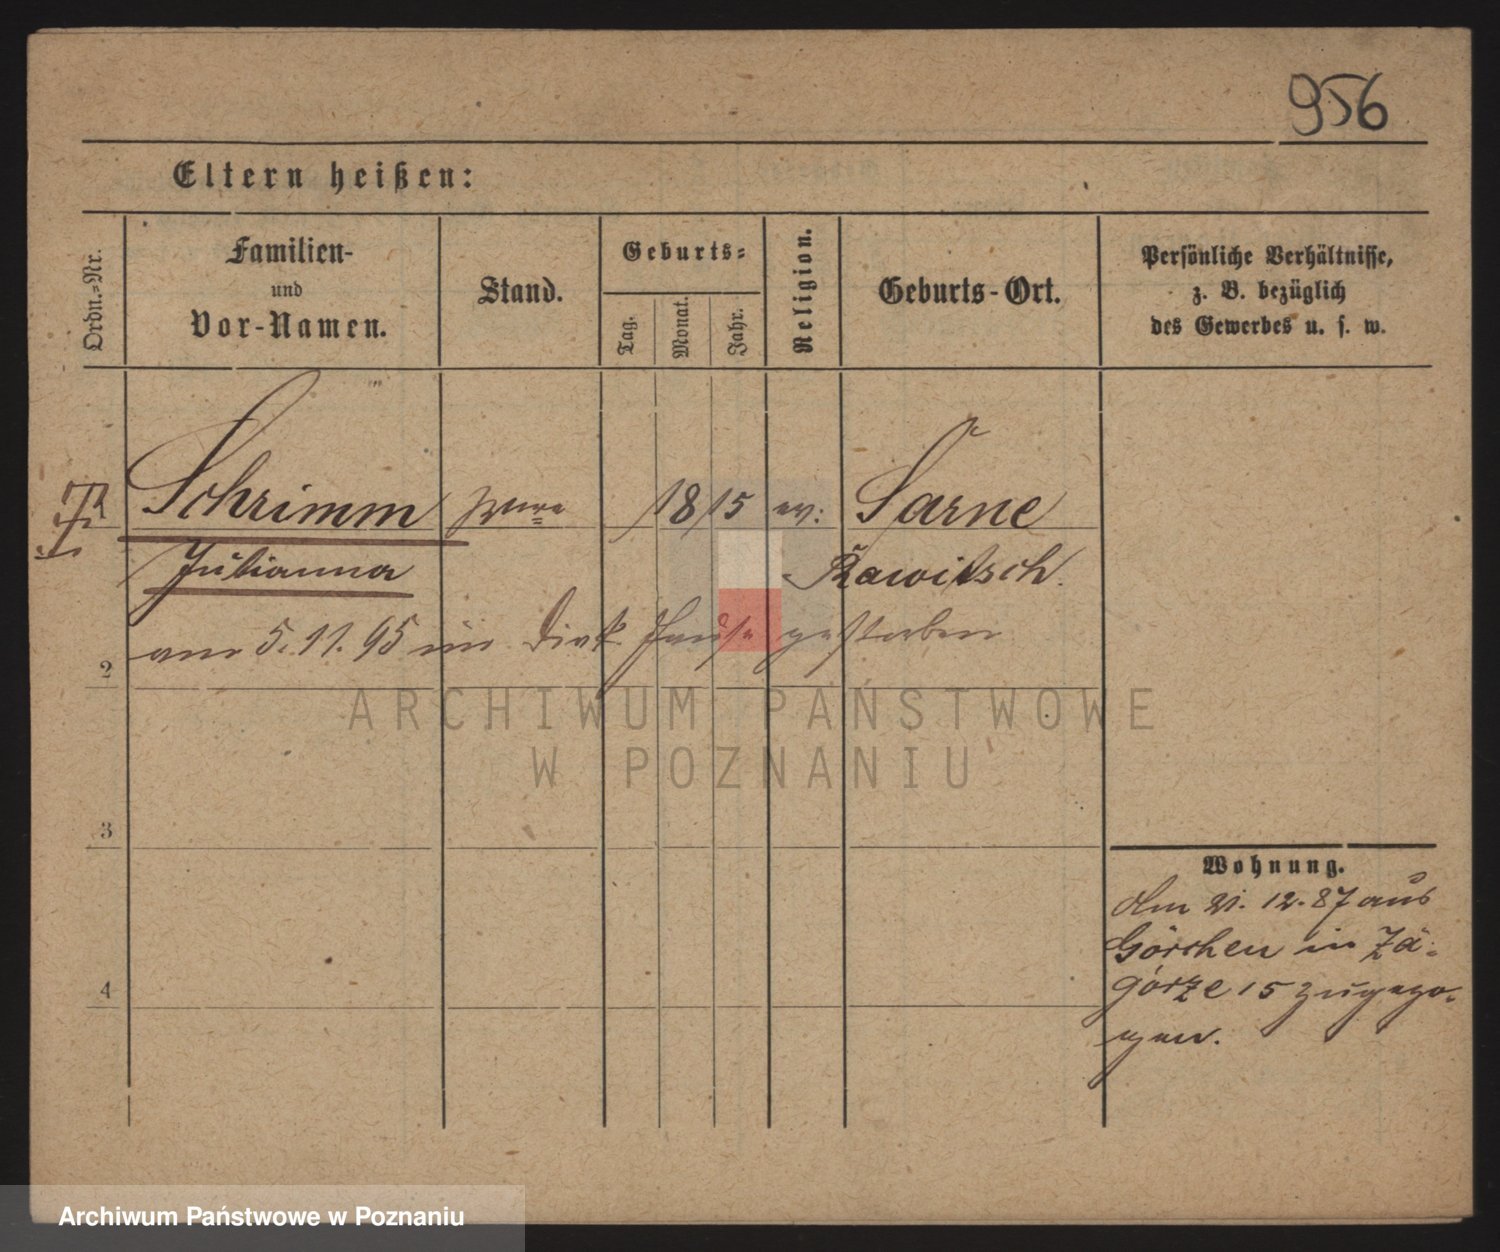 956
Eltern heißen:
Ordn.-Nr.
Familien-
und
Vor-Namen.
Stand.
Geburts-
Tag.
Monat.
Jahr.
Religion.
Geburts-Ort.
Persönliche Verhältnisse,
z. B. bezüglich
des Gewerbes u. s. w.
Schrimm 1815 ev: Sarne
Julianna Kr. Rawitsch.
am 5.11.95 im Diak Hause gestorben
2
3
4
Wohnung.
Am 21.12.87 aus
Görchen in Za-
górze 15 zugezo-
gen.
ARCHIWUM PAŃSTWOWE
W POZNANIU
Archiwum Państwowe w Poznaniu